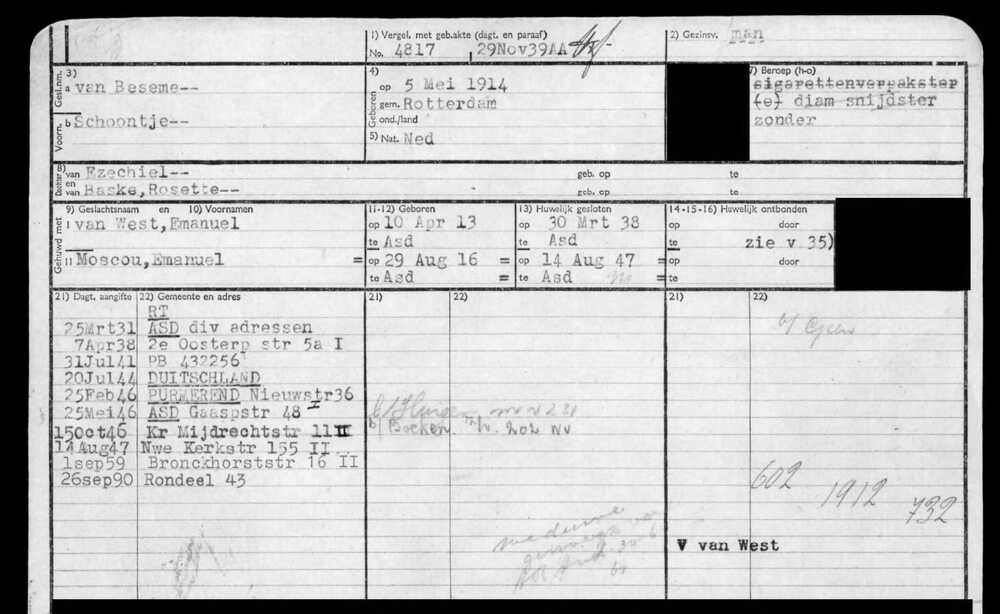 1) Vergel. met geb.akte (dagt. en paraaf)
No. 4817 , 29Nov39AA
2) Gezinsv. man
3)
Gesl.nm. a van Beseme--
Voorn. b Schoontje--
4)
Geboren
op 5 Mei 1914
gem. Rotterdam
ond./land
5) Nat. Ned
7) Beroep (h-o)
sigarettenverpakster
(e) diam snijdster
zonder
Dochter 8) van Ezechiel-- geb. op te
en van Baske, Rosette-- geb. op te
9) Geslachtsnaam en 10) Voornamen
11-12) Geboren
13) Huwelijk gesloten
14-15-16) Huwelijk ontbonden
Gehuwd met
I van West, Emanuel op 10 Apr 13 op 30 Mrt 38 op door
te Asd te Asd te zie v 35)
II Moscou, Emanuel = op 29 Aug 16 = op 14 Aug 47 = op door
te Asd = te Asd = te
21) Dagt. aangifte 22) Gemeente en adres 21) 22) 21) 22)
RT
25Mrt31 ASD div adressen
7Apr38 2e Oosterp str 5a I
31Jul41 PB 432256
20Jul44 DUITSCHLAND
25Feb46 PURMEREND Nieuwstr36
25Mei46 ASD Gaaspstr 48 I
15Oct46 Kr Mijdrechtstr 11 II
14Aug47 Nwe Kerkstr 155 II
1sep59 Bronckhorststr 16 II
26sep90 Rondeel 43
602
1912
732
V van West